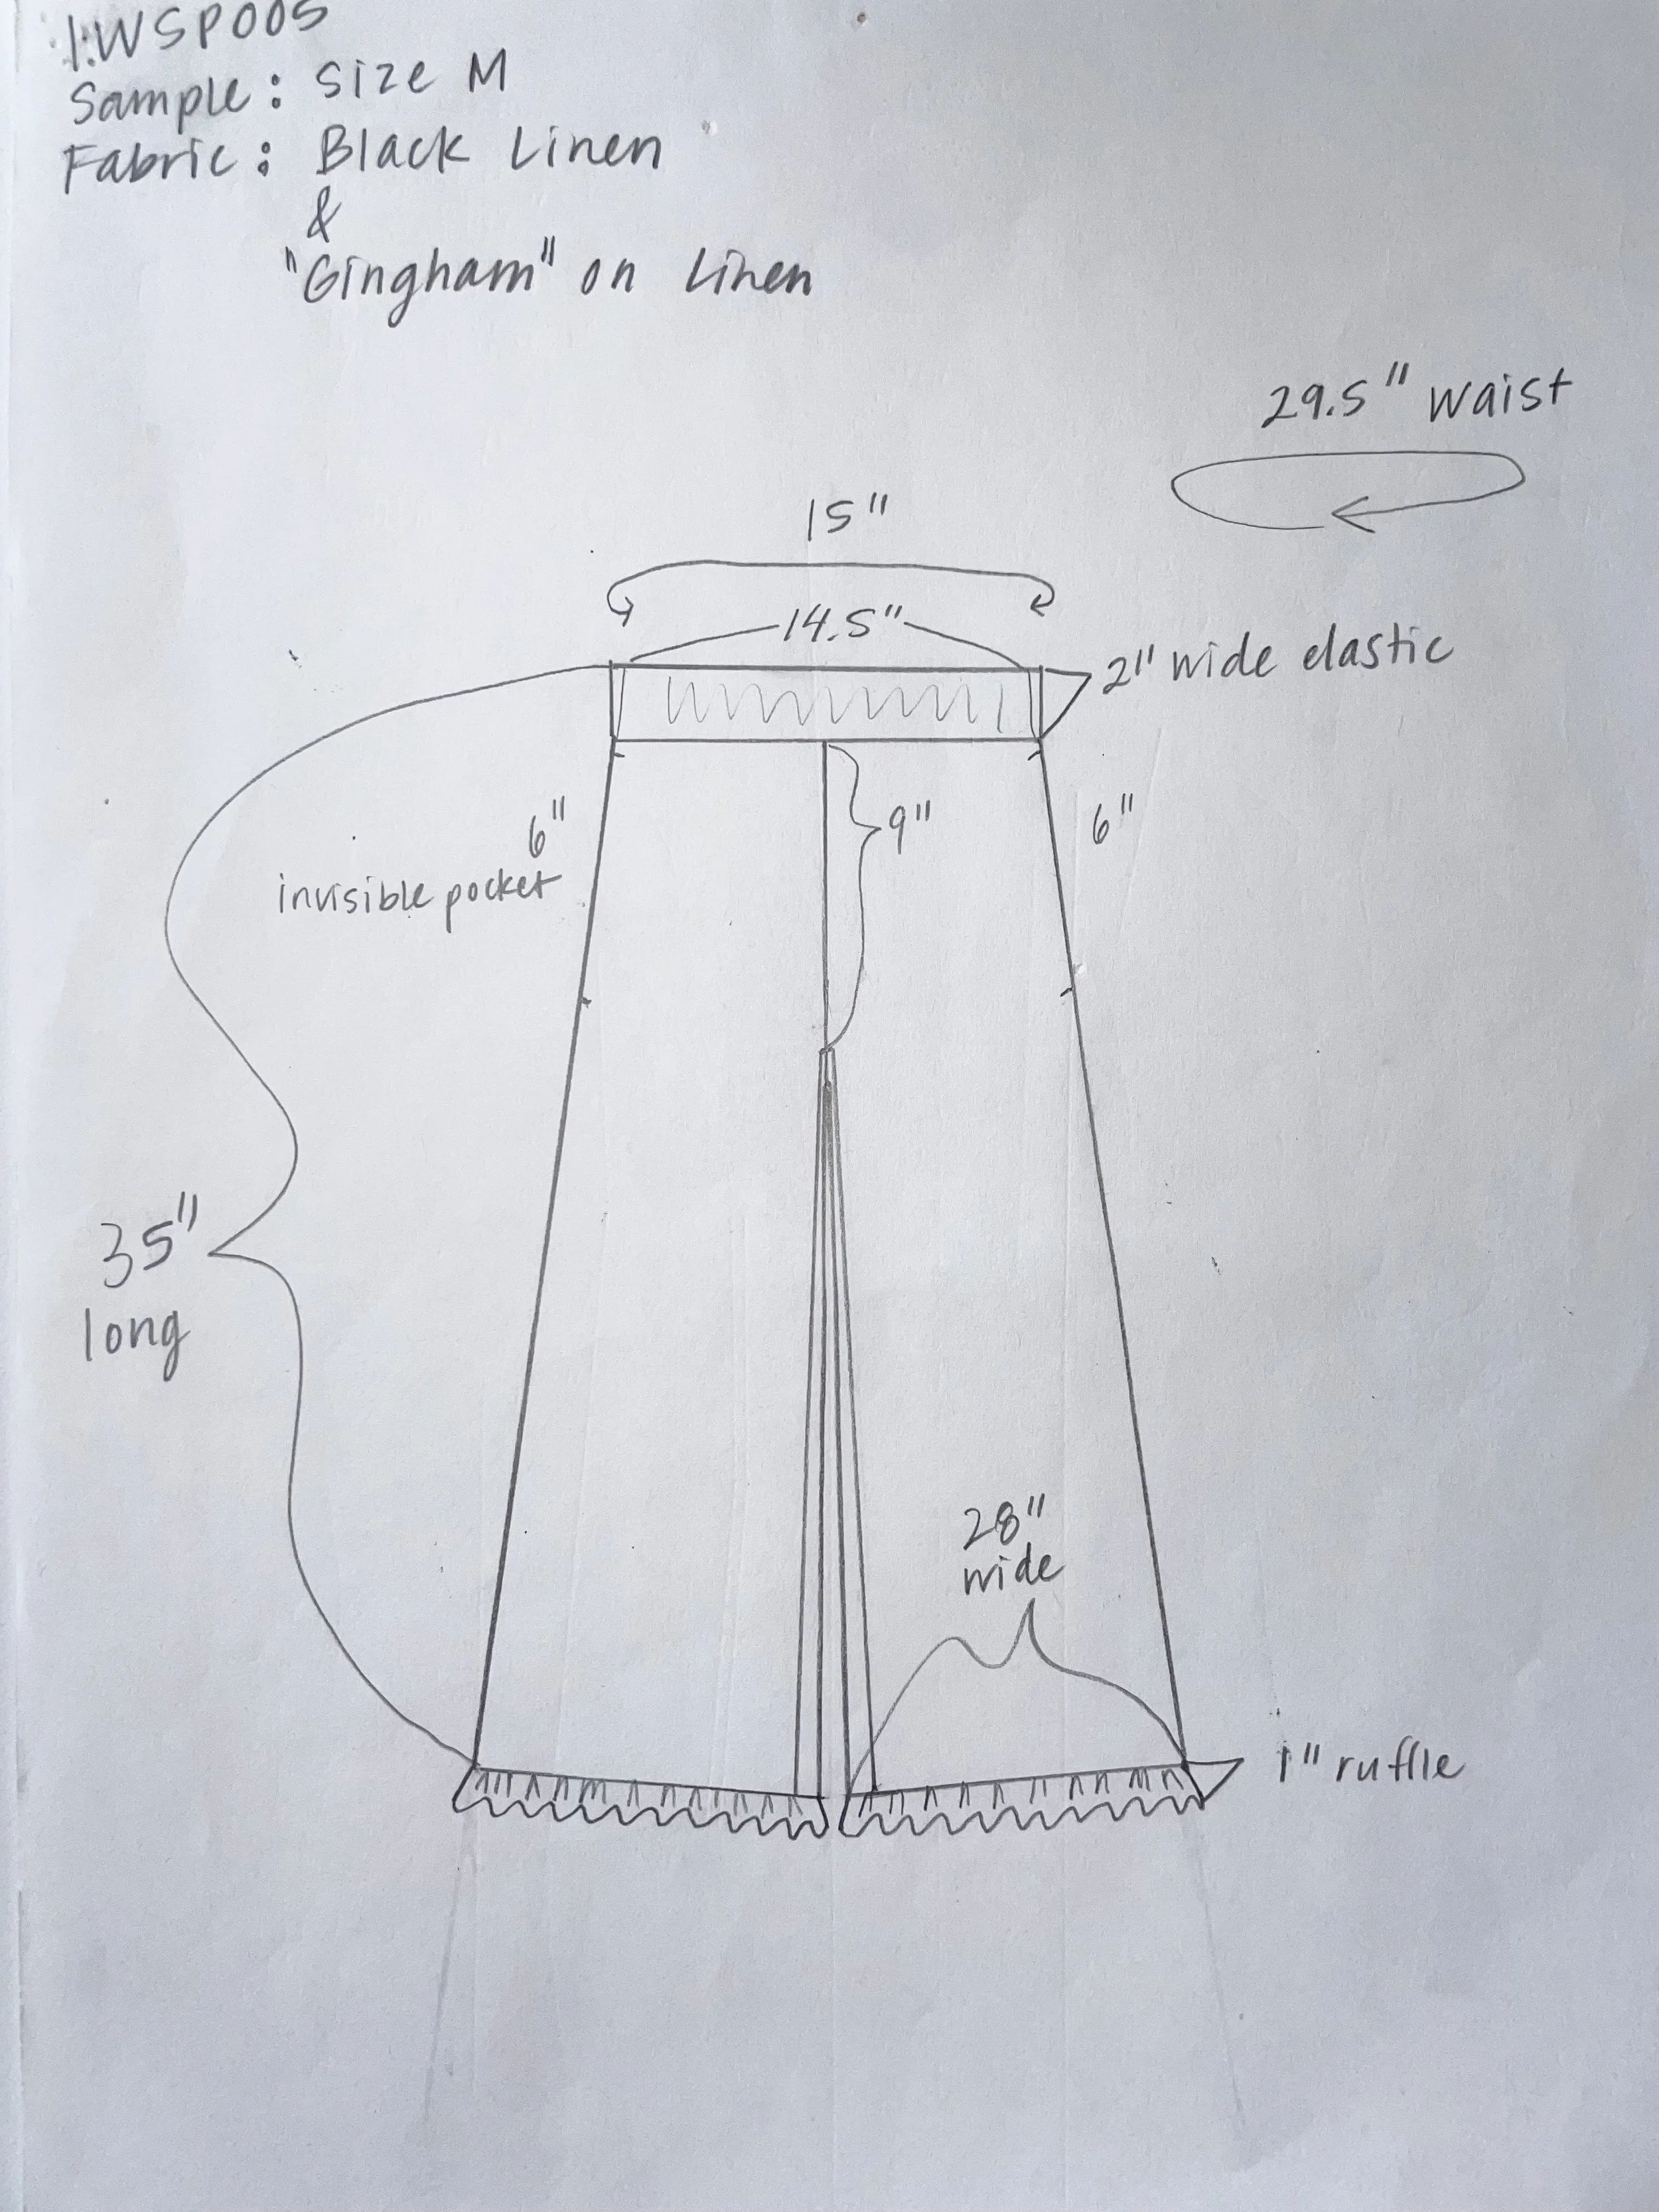 1.WSP005
Sample: Size M
Fabric: Black Linen
&
"Gingham" on Linen
29.5" waist
15"
14.5"
2" wide elastic
6"
invisible pocket
9"
6"
35"
long
28"
wide
1" ruffle